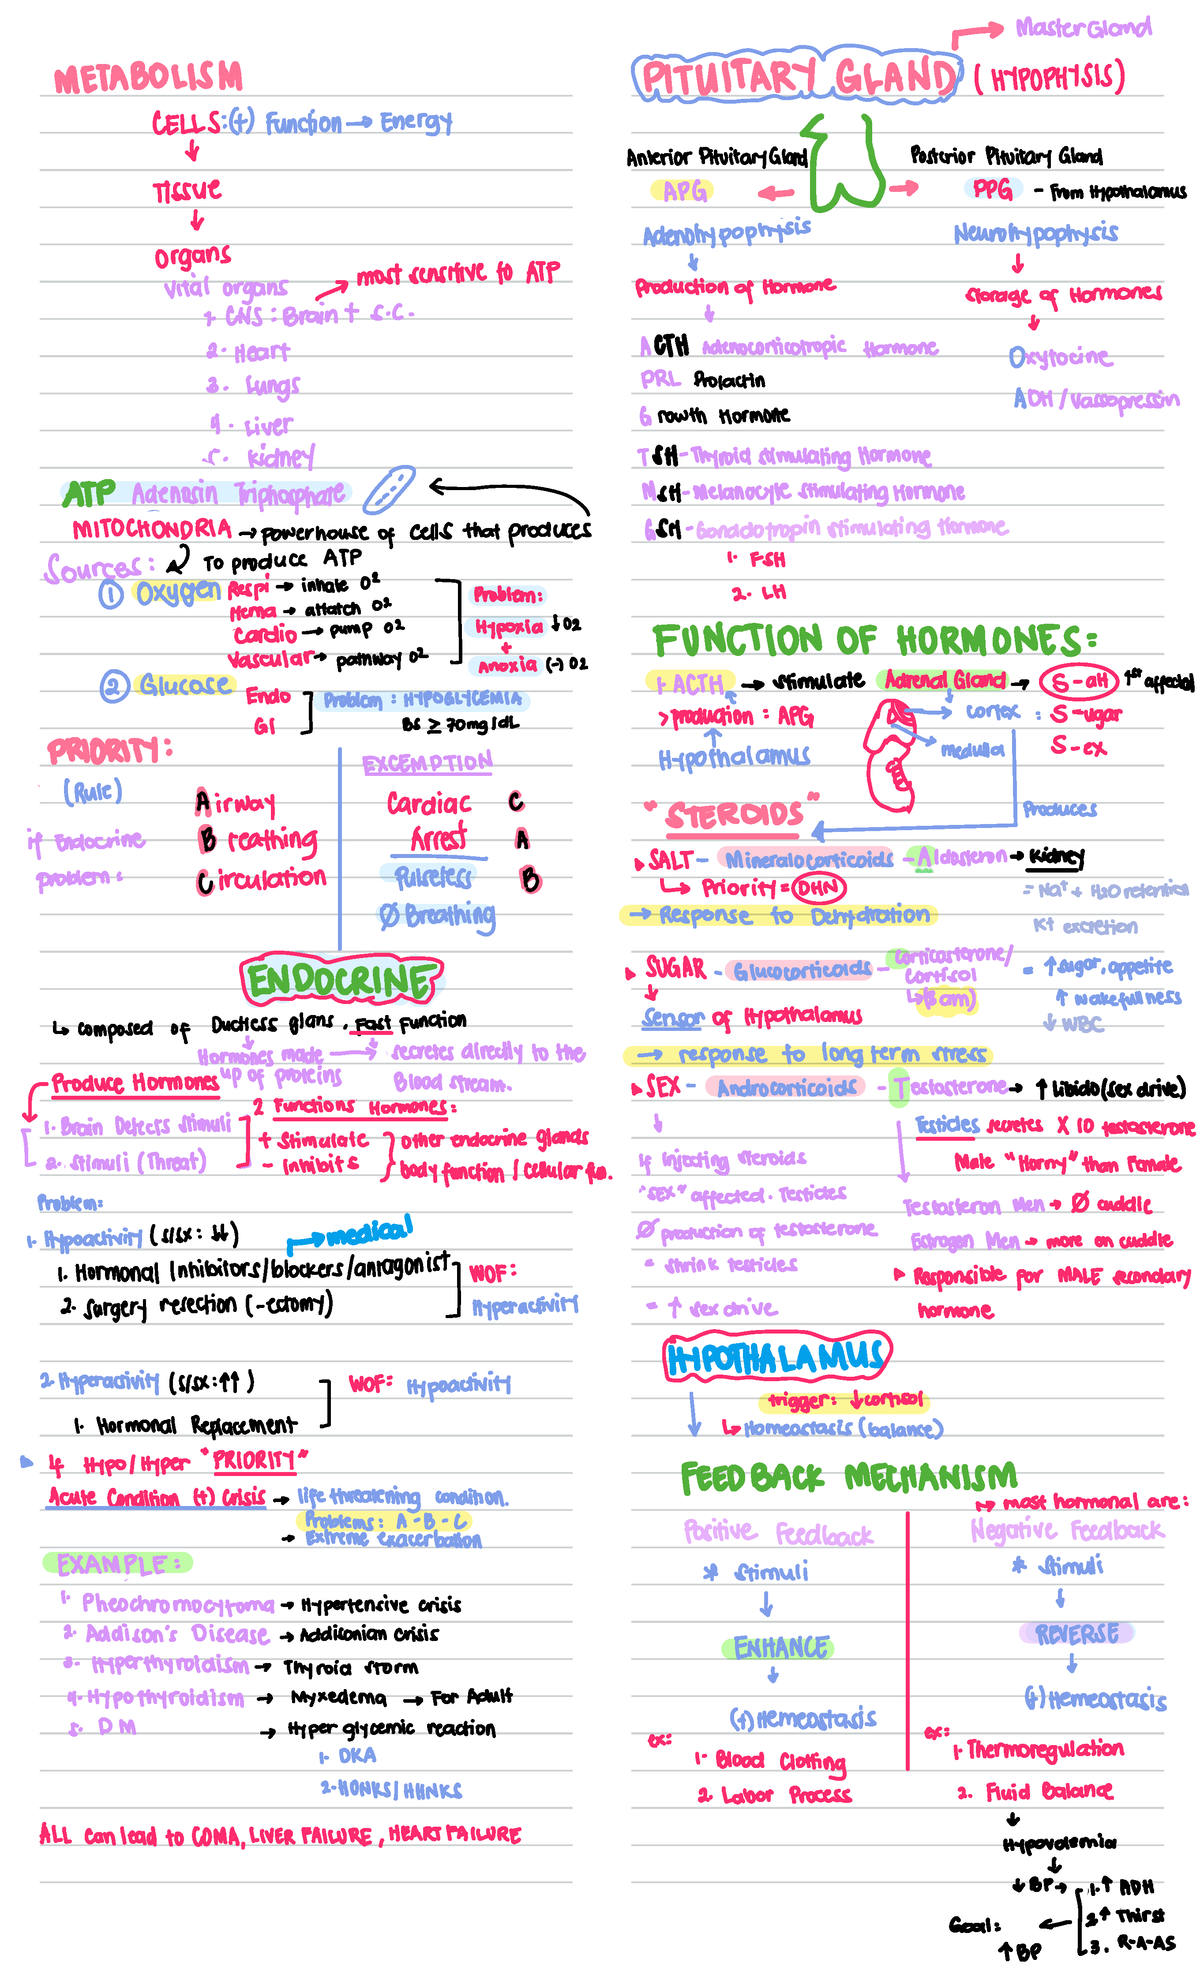 METABOLISM
CELLS:(+) Function → Energy
↓
Tissue
↓
Organs
Vital organs → most sensitive to ATP
1. CNS: Brain + S.C.
2. Heart
3. Lungs
4. Liver
5. Kidney
ATP Adenosin Triphosphate
MITOCHONDRIA → powerhouse of cells that produces
Sources: To produce ATP
① Oxygen Respi → inhale O2
Hema → attatch O2
Cardio → pump O2
Vascular → pathway O2
Problem:
Hypoxia ↓O2
+
Anoxia (-) O2
② Glucose Endo
GI
Problem: HYPOGLYCEMIA
BS ≥ 70mg/dL
PRIORITY:
(Rule)
if Endocrine
problem:
Airway
Breathing
Circulation
EXCEMPTION
Cardiac C
Arrest A
Pulseless B
Ø Breathing
ENDOCRINE
↳ composed of Ductless glans. Fast Function
Hormones made → secretes directly to the
up of proteins Blood stream.
Produce Hormones
1. Brain Detects stimuli
2. Stimuli (Threat)
2 Functions Hormones:
+ Stimulate
- Inhibits
other endocrine glands
body function / cellular fxn.
Problem:
1. Hypoactivity (s/sx: ↓↓) → medical
1. Hormonal Inhibitors/blockers/antagonist
2. Surgery resection (-ectomy)
WOF:
Hyperactivity
2. Hyperactivity (s/sx: ↑↑)
1. Hormonal Replacement
WOF: Hypoactivity
If Hypo/Hyper "PRIORITY"
Acute Condition (+) Crisis → life threatening condition.
Problems: A-B-C
→ Extreme exacerbation
EXAMPLE:
1. Pheochromocytoma → Hypertensive crisis
2. Addison's Disease → Addisonian crisis
3. Hyperthyroidism → Thyroid storm
4. Hypothyroidism → Myxedema → For Adult
5. DM → Hyper glycemic reaction
1. DKA
2. HONKS/HHNKS
ALL can lead to COMA, LIVER FAILURE, HEART FAILURE
Master Gland
PITUITARY GLAND (HYPOPHYSIS)
Anterior Pituitary Gland
APG
Adenohypophysis
↓
Production of Hormone
↓
ACTH Adenocorticotropic Hormone
PRL Prolactin
Growth Hormone
TSH-Thyroid stimulating Hormone
MSH-Melanocyte stimulating Hormone
GSH-Gonadotropin stimulating Hormone
1. FSH
2. LH
Posterior Pituitary Gland
PPG - From Hypothalamus
Neurohypophysis
↓
Storage of Hormones
↓
Oxytocine
ADH/Vassopressin
FUNCTION OF HORMONES:
1. ACTH → stimulate Adrenal Gland → S-alt 1st affected
>production: APG
Hypothalamus
cortex: S-ugar
medulla S-ex
Produces
"STEROIDS"
SALT - Mineralocorticoids - Aldosteron → Kidney
↳ Priority = DHN
= Na+ + H2O retention
K+ excretion
→ Response to Dehydration
SUGAR - Glucocorticoids - Corticosterone/
cortisol
↳(8 am)
= ↑sugar, appetite
↑ wakefullness
↓ WBC
Sensor of Hypothalamus
→ response to long term stress
SEX - Androcorticoids - Testosterone → ↑ libido (sex drive)
↓
If injecting steroids
"SEX" affected. Testicles
Ø production of testosterone
= shrink testicles
= ↑ sex drive
Testicles secretes X 10 testosterone
Male "Horny" than Female
Testosteron Men → Ø cuddle
Estrogen Men → more on cuddle
Responsible for MALE secondary
hormone
HYPOTHALAMUS
trigger: ↓cortisol
↳ Homeostasis (balance)
FEEDBACK MECHANISM
↪ most hormonal are:
Positive Feedback
* Stimuli
↓
ENHANCE
↓
(+) Homeostasis
ex:
1. Blood Clotting
2. Labor Process
Negative Feedback
* Stimuli
↓
REVERSE
↓
(+) Homeostasis
ex:
1. Thermoregulation
2. Fluid Balance
↓
Hypovolemia
↓
↓BP →
1. ↑ ADH
2 ↑ Thirst
3. R-A-AS
Goal:
↑BP